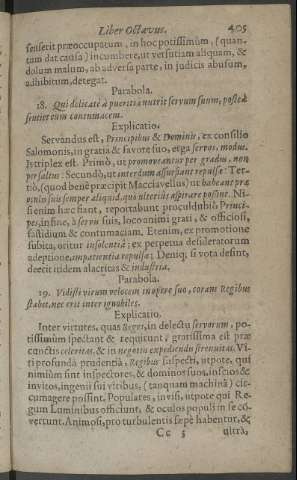 Liber Octavus. 405
senserit præoccupatum, in hoc potissimùm, (quan-
tam dat causa) incumbere, ut versutiam aliquam, &
dolum malum, ab adversa parte, in judicis abusum,
adhibitum, detegat.
Parabola.
18. Qui delicatè à pueritia nutrit servum suum, posteà
sentiet eum contumacem.
Explicatio.
Servandus est, Principibus & Dominis, ex consilio
Salomonis, in gratia & favore suo, erga servos, modus.
Is triplex est. Primò, ut promoveantur per gradus, non
per saltus: Secundò, ut interdum assuefiant repulsæ: Ter-
tiò, (quod benè præcipit Macciavellus) ut habeant præ
oculis suis semper aliquid, quo ulteriùs aspirare possint. Ni-
si enim hæc fiant, reportabunt proculdubiò Princi-
pes, in fine, à servis suis, loco animi grati, & officiosi,
fastidium & contumaciam. Etenim, ex promotione
subita, oritur insolentia; ex perpetua desideratorum
adeptione, impatientia repulsæ; Deniq; si vota desint,
deerit itidem alacritas & industria.
Parabola.
19. Vidisti virum velocem in opere suo, coram Regibus
stabit, nec erit inter ignobiles.
Explicatio.
Inter virtutes, quas Reges, in delectu servorum, po-
tissimùm spectant & requirunt, gratissima est præ
cunctis celeritas, & in negotiis expediendis strenuitas. Vi-
ri profundâ prudentiâ, Regibus suspecti, utpote, qui
nimiùm sint inspectores, & dominos suos, inscios &
invitos, ingenii sui viribus, (tanquam machinâ) cir-
cumagere possint. Populares, invisi, utpote qui Re-
gum Luminibus officiunt, & oculos populi in se co-
vertunt. Animosi, pro turbulentis sæpè habentur, &
Cc 3 ultra,